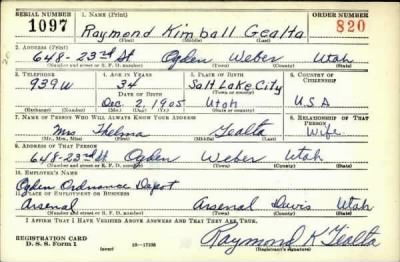 SERIAL NUMBER 1. NAME (Print) ORDER NUMBER
1097 Raymond Kimball Gealta 820
(First) (Middle) (Last)
2. ADDRESS (Print)
648-23rd St Ogden Weber Utah
(Number and street or R. F. D. number) (Town) (County) (State)
3. TELEPHONE 4. AGE IN YEARS 5. PLACE OF BIRTH 6. COUNTRY OF CITIZENSHIP
939W 34 Salt Lake City
DATE OF BIRTH (Town or county)
Dec. 2, 1905 Utah U.S.A
(Exchange) (Number) (Mo.) (Day) (Yr.) (State or country)
7. NAME OF PERSON WHO WILL ALWAYS KNOW YOUR ADDRESS 8. RELATIONSHIP OF THAT PERSON
Mrs Thelma Gealta Wife
(Mr., Mrs., Miss) (First) (Middle) (Last)
9. ADDRESS OF THAT PERSON
648-23rd St. Ogden Weber Utah
(Number and street or R. F. D. number) (Town) (County) (State)
10. EMPLOYER'S NAME
Ogden Ordnance Depot
11. PLACE OF EMPLOYMENT OR BUSINESS
Arsenal Arsenal Davis Utah
(Number and street or R. F. D. number) (Town) (County) (State)
I AFFIRM THAT I HAVE VERIFIED ABOVE ANSWERS AND THAT THEY ARE TRUE.
REGISTRATION CARD
D. S. S. Form 1 (over) 16-17105 Raymond K Gealta
(Registrant's signature)